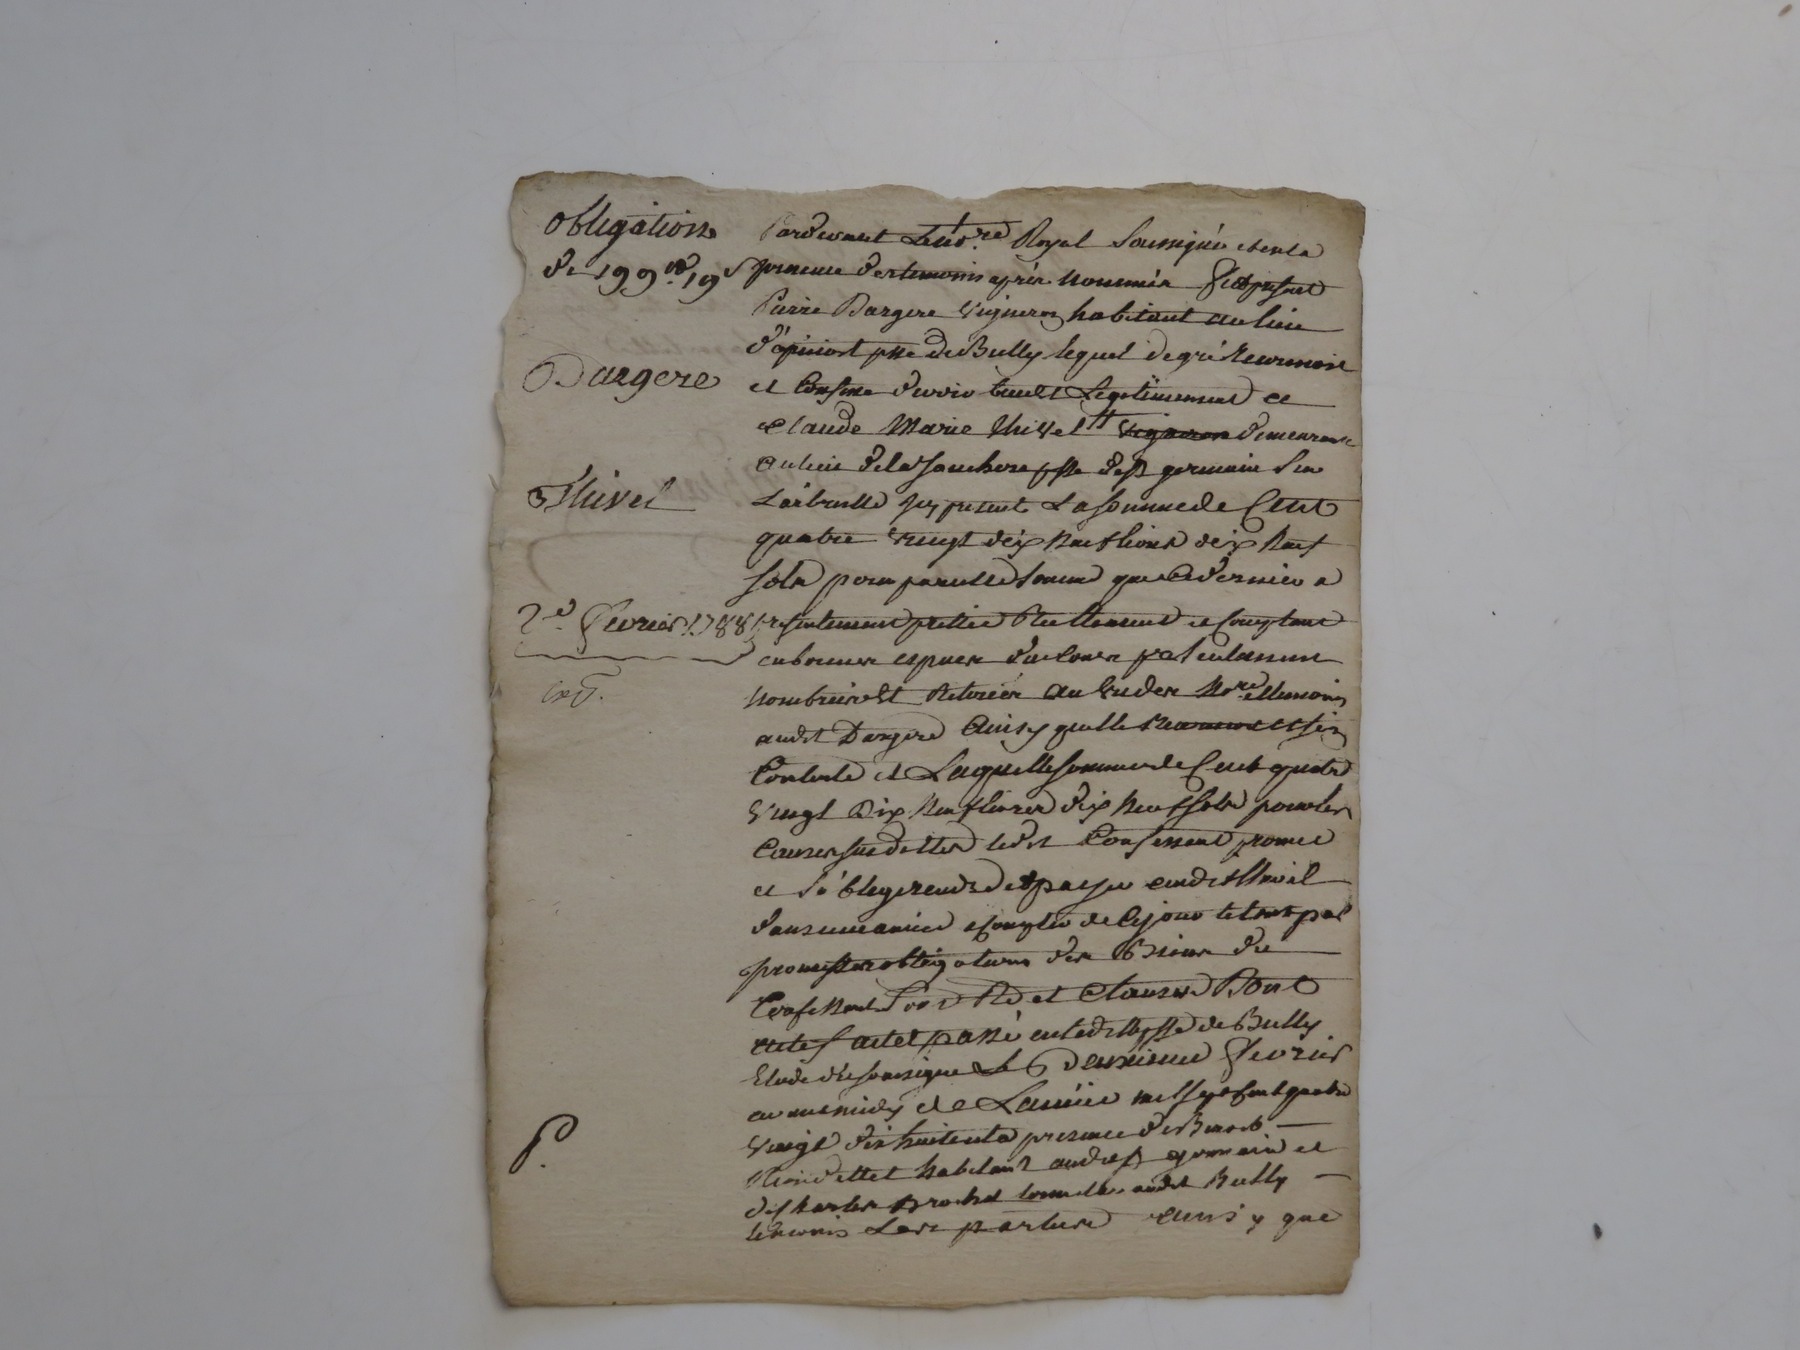 obligation
de 199ᵗᵗ 19ˢ
Dargere
Thivel
2ᵉ fevrier 1788
Pardevant Le noʳᵉ Royal Soussigné et en la
presence des temoins après nommés fut present
Pierre Dargere vigneron habitant au lieu
d'apiniost psse de Bully lequel de gré Reconnoit
et Confesse devoir bien et Legitimement a
Claude Marie Thivel demeurant
au lieu de la psse de St germain Sur
Larbresle icy present La somme de Cent
quatre vingt dix neuf livres dix neuf
sols pour pareille somme que ce dernier a
presentement prettée Reellement et Comptant
en bonnes especes de cours
nombrées et Retirées au vu des noʳᵉ et temoins
audit Dargere Ainsy qu'elle Reconnoit et s'en
Contente et Laquelle somme de Cent quatre
vingt Dix neuf livres dix neuf sols pour les
Causes susdittes ledit Confessant promet
et s'oblige rendre et payer audit Thivel
dans une année a Compter de Ce jour le tout par
promesses obligations des Biens du
Confessant et Clauses Dont
acte fait et passé audit Bully
Etude du soussigné Le Deuxieme fevrier
avant midy de L'année mil sept Cent quatre
vingt dix huit en la presence de Benoit
habitant audit St germain et
de Charles audit Bully
temoins Les parties ainsi que